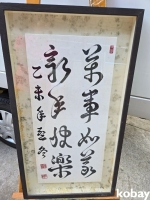 萬事如意
新年快樂
乙未年
kobay